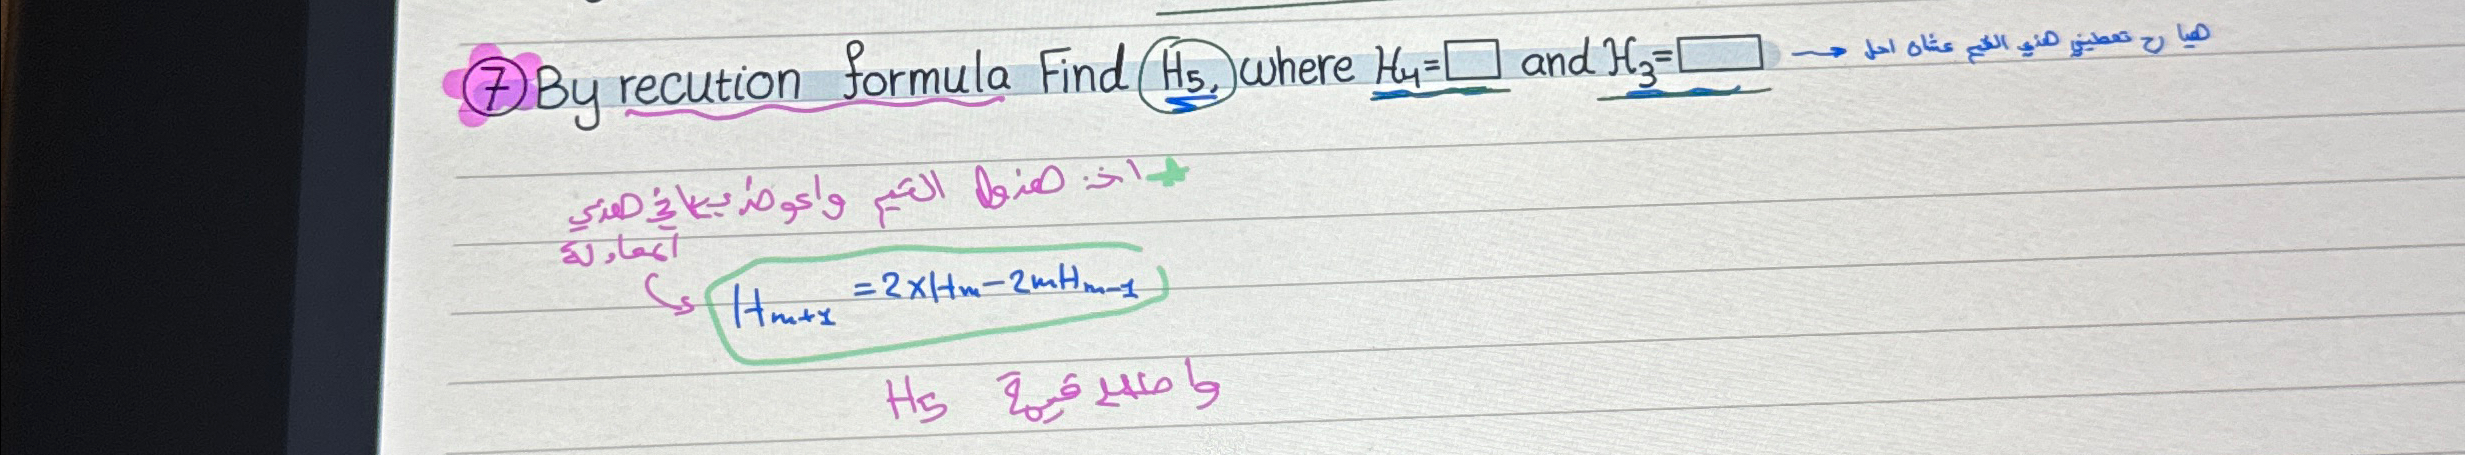 ⑦ By recution formula Find H₅, where H₄=□ and H₃=□ → هيا رح تعطيني هذي القيم عشان احل
اخذ هذول القيم واعوض بيها في هذي
المعادلة
Hₘ₊₁ = 2xHₘ - 2mHₘ₋₁
واطلع قيمة H₅